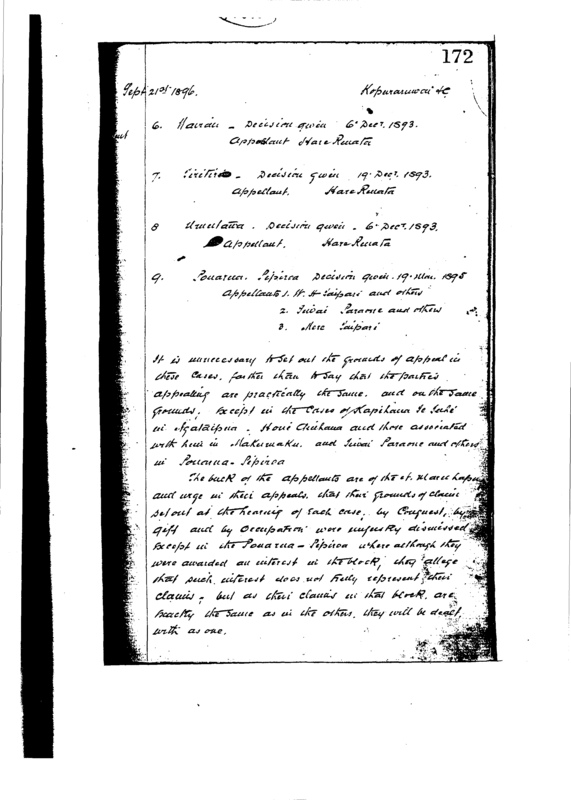 172
Sept 21st 1896. Kopuraruwai &c
6. Hairini - Decision given 6' Decr. 1893.
Appellant Hare Renata
7. - Decision given 19. Decr. 1893.
Appellant. Hare Renata
8 - Decision given - 6. Decr. 1893.
Appellant. Hare Renata
9. Pouarua. Pipiroa Decision given. 19. Mar. 1895
Appellants 1. W. H. Taipari and others
2. Paraone and others
3. Mere Taipari
It is unnecessary to set out the grounds of appeal in
these cases, further than to say that the parties
appealing are practically the same, and on the same
grounds, Except in the Cases of Hapihana Te
in Ngataipua. Hone and those associated
with him in Makumaku, and Paraone and others
in Pouarua - Pipiroa
The bulk of the appellants are of the
and urge in their appeals, that their grounds of claim
set out at the hearing of Each case, by Conquest, by
gift and by Occupation were unjustly dismissed
Except in the Pouarua - Pipiroa where although they
were awarded an interest in the block, they allege
that such interest does not fully represent their
claims, but as their claims in that block are
Exactly the same as in the others, they will be dealt
with as one.